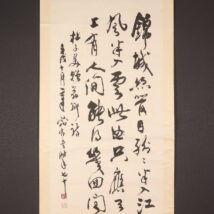 錦城絲管日紛々半入江
風半入雲此曲只應天
上有人間能得幾回聞
杜子美贈花卿詩